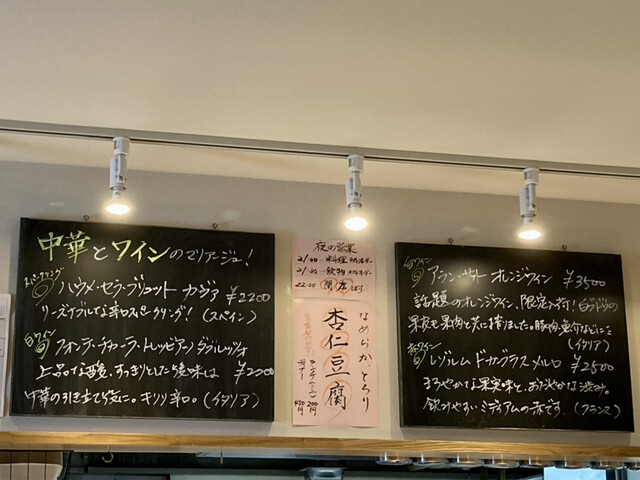 中華とワインのマリアージュ!
スパークリング
ハウメ・セラ・ブリュット カヴァ ¥2200
リーズナブルな辛口スパークリング!(スペイン)
白ワイン
フォンテ・デラ・トレッビアーノ ダブルッツォ
上品な酸、すっきりとした後味は ¥2200
中華の引き立て役に。キリッ辛口。(イタリア)
夜の営業
21:00 料理 ラストオーダー
21:30 飲物 ラストオーダー
22:00 閉店
なめらか、とろり
杏仁豆腐
ランチ(ミニ) 200円
ディナー 450円
白ワイン
オレンジワイン ¥3500
話題のオレンジワイン、限定入荷!白ブドウの
果皮も果肉と共に搾りました。豚肉、
(イタリア)
赤ワイン
レゾルム ドゥ カンブラス メルロ ¥2500
まろやかな果実味と、おだやかな渋み。
飲みやすいミディアムの赤です。(フランス)